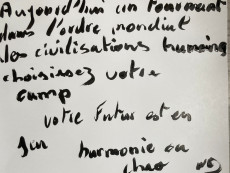 Aujourd'hui un tournant
dans l'ordre mondial
des civilisations humaine
choisissez votre
camp
votre Futur est en
Jeu harmonie ou
chao